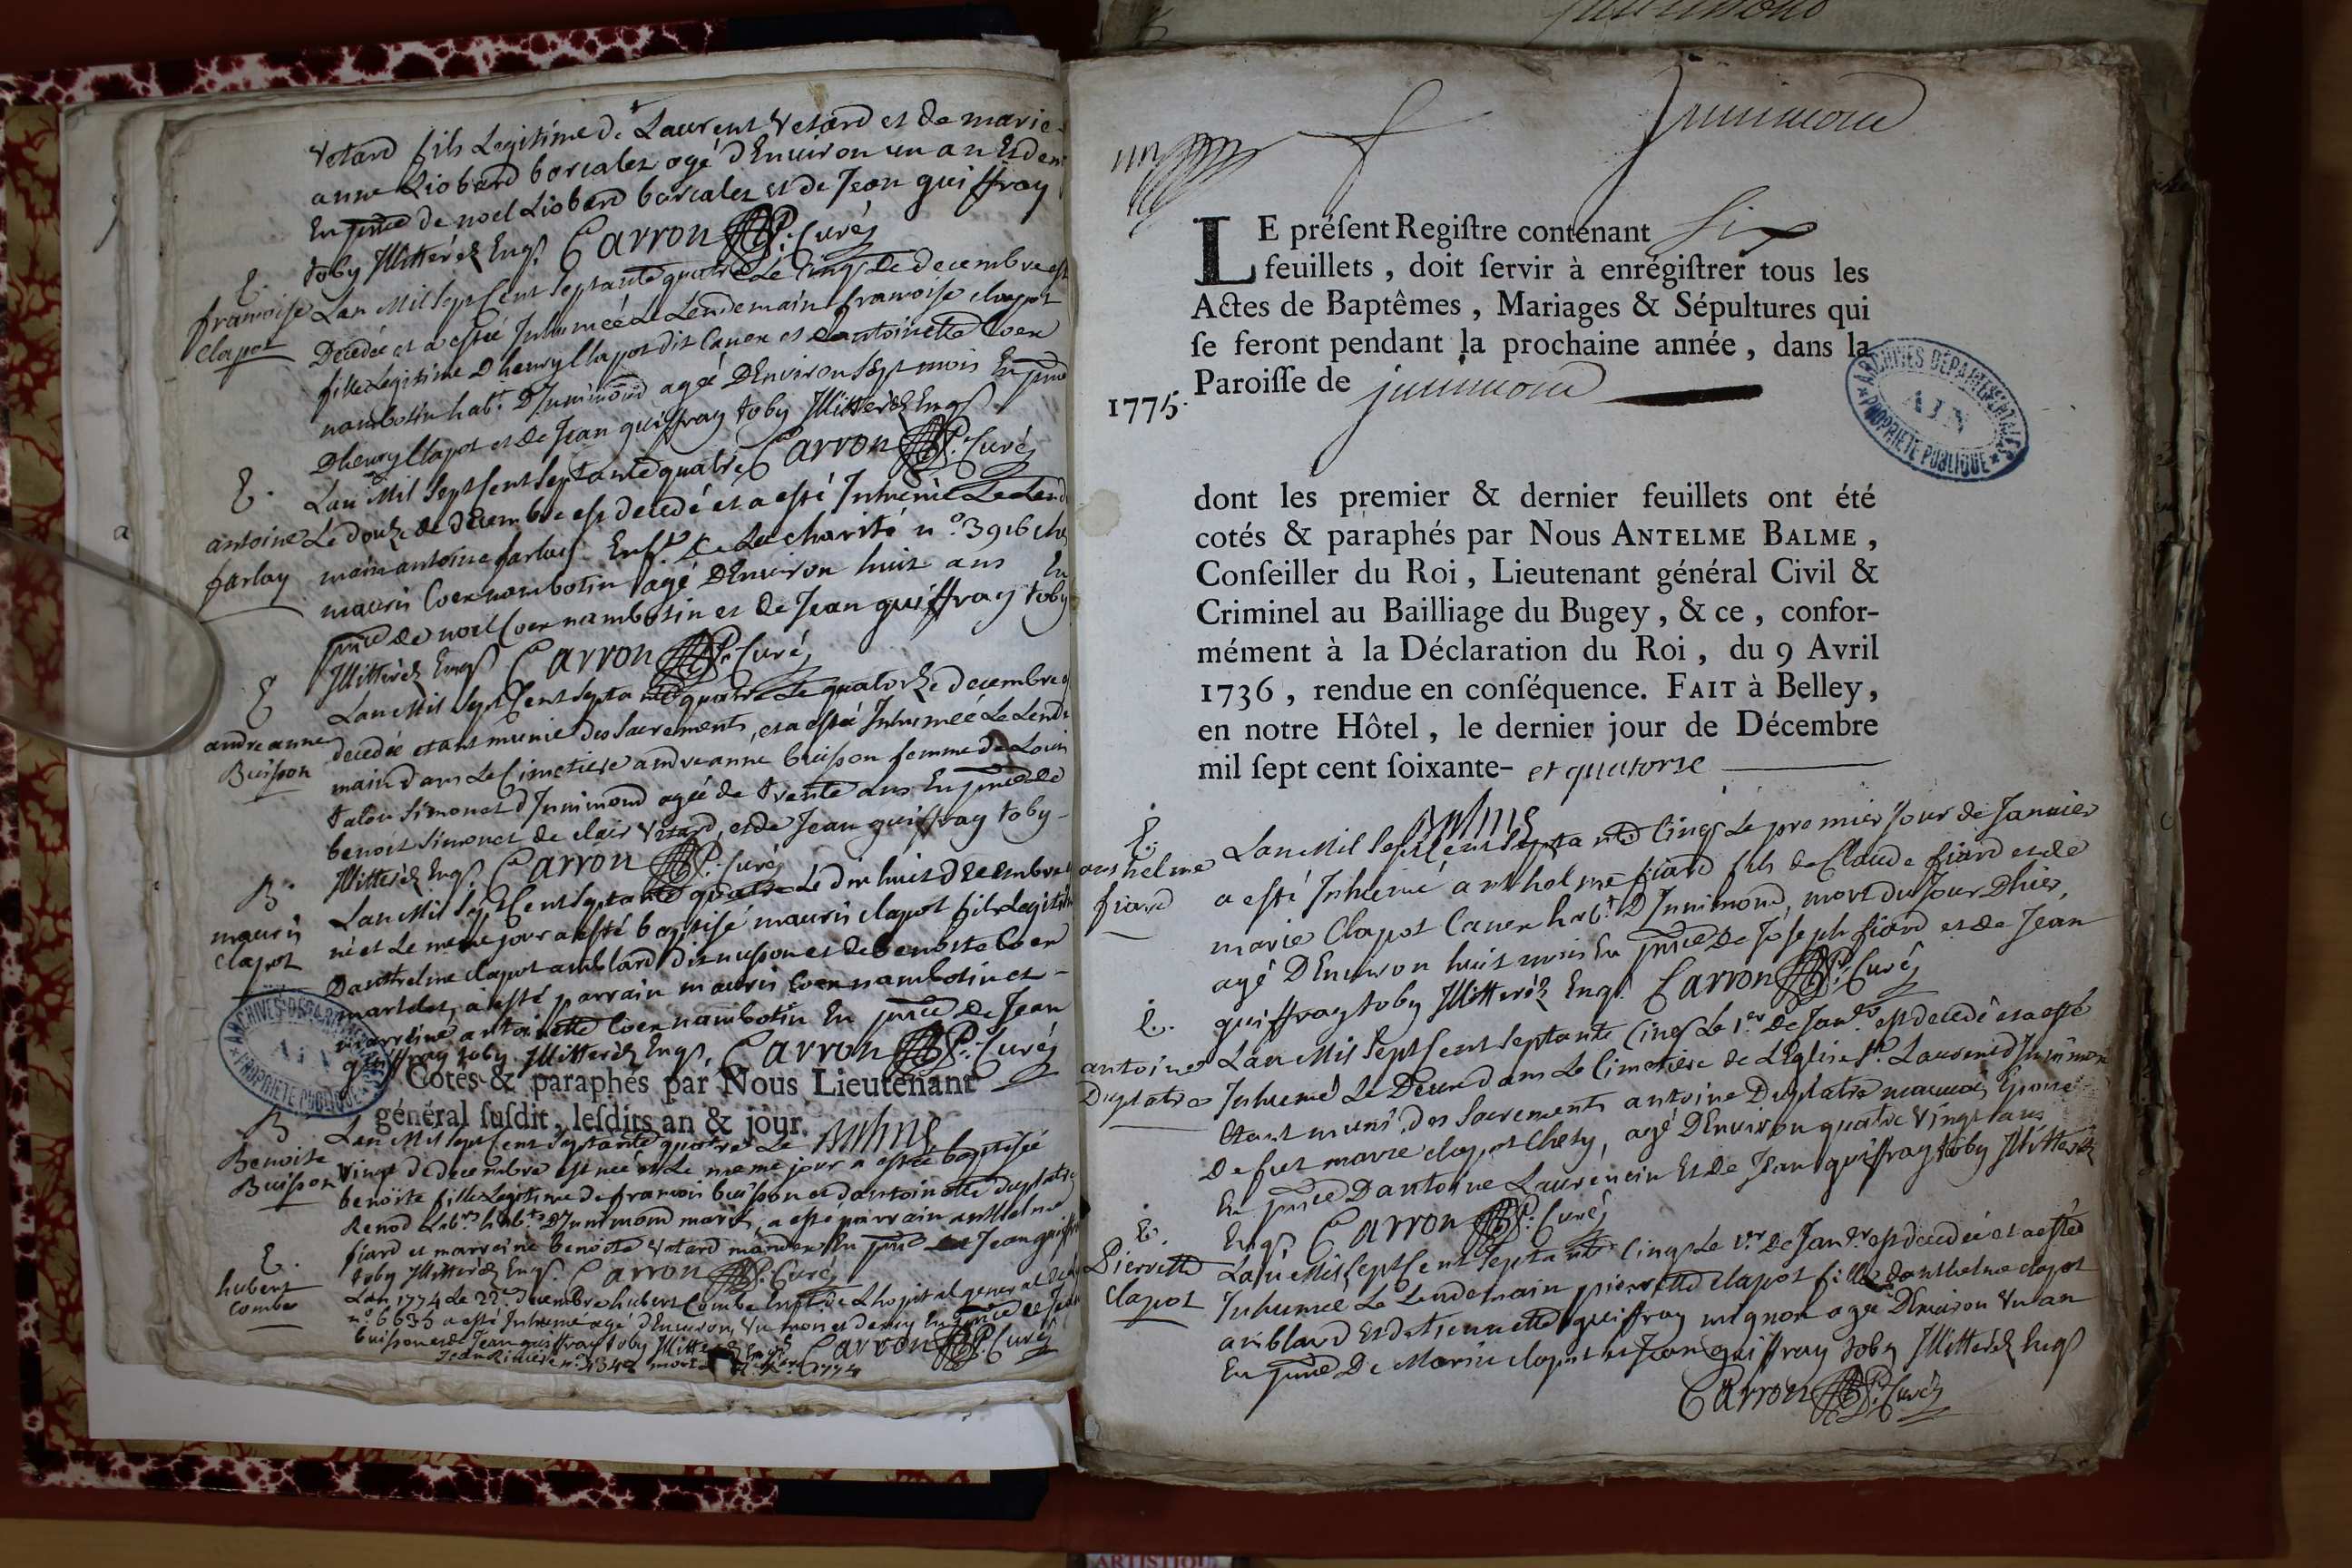 vetard fils Legitime de Laurent vetard et de marie
anne Liobard borcalet agé d'Environ un an Et demi
En pnce de noel Liobard borcalet et de Jean guiffray
toby Illitteréz Enqs. Carron P: Curé
E.
francoise
Clapot
Lan Mil Sept Cent Septante quatre Le Cinq de decembre est
Decedée et a estée Inhumée Le Lendemain francoise clapot
fille Legitime D'henry Clapot dit Caven et d'antoinette Coen
nambotin habt. D'Innimond agée D'Environ Sept mois En pnce
D'henry Clapot et de Jean guiffray toby Illitteréz Enqs
Carron P: Curé
E.
antoine
farlay
Lan Mil Sept Cent Septante quatre
Le douze de decembre est decedé et a esté Inhumé Le Lende
main antoine farlay Enft de La charité n.o 3916 chez
mauris Coen nambotin agé D'Environ huit ans En
pnce de noel Coen nambotin et de Jean guiffray toby
Illitteréz Enqs Carron P: Curé
E
andreanne
Buisson
Lan Mil Sept Cent Septante quatre Le quatorze decembre est
decedée etant munie des Sacrements, et a estée Inhumée Le Lende
main dans Le Cimetiere andreanne buisson femme de Louis
talon Simonet d'Innimond agée de trente ans En pnce de
benoit Simonet de clair vetard, et de Jean guiffray toby
Illitteréz Enqs. Carron P: Curé
B.
mauris
clapot
Lan Mil Sept Cent Septante quatre Le dix huit Decembre est
né et Le meme jour a esté baptisé mauris clapot fils Legitime
D'anthelme clapot amblard dit nusson et de benoite Coen
martelet, a esté parrain mauris Coen nambotin et
marreine antoinette Coen nambotin En pnce de Jean
guiffray toby Illitteréz Enqs. Carron P: Curé
Cotés & paraphés par Nous Lieutenant
général ſuſdit, leſdits an & jour.
Balme
B
Benoite
Buisson
Lan Mil Sept Cent Septante quatre Le
vingt de decembre est née et Le meme jour a estée baptisée
benoite fille Legitime de francois buisson et d'antoinette duplatre
Renod Labrs habts. D'Innimond mariés, a esté parrain anthelme
fiard et marreine benoite vetard En pnce de Jean guiffray
toby Illitteréz Enqs. Carron P: Curé
E.
hubert
Combe
Lan 1774 Le 22e decembre hubert Combe Enft de L'hopital general
n.o 6633 a esté Inhumé agé d'Environ un mois et demy En pnce de Jean
buisson et de Jean guiffray toby Illitteréz Enqs Carron P: Curé
1774
Innimond
LE préſent Regiſtre contenant Six
feuillets, doit ſervir à enrégiſtrer tous les
Actes de Baptêmes, Mariages & Sépultures qui
ſe feront pendant la prochaine année, dans la
Paroiſſe de Innimond
1775.
ARCHIVES DEPARTEMENTALES
AIN
PROPRIETE PUBLIQUE
dont les premier & dernier feuillets ont été
cotés & paraphés par Nous ANTELME BALME,
Conſeiller du Roi, Lieutenant général Civil &
Criminel au Bailliage du Bugey, & ce, confor-
mément à la Déclaration du Roi, du 9 Avril
1736, rendue en conſéquence. FAIT à Belley,
en notre Hôtel, le dernier jour de Décembre
mil ſept cent ſoixante- et quatorse
Balme
E.
anthelme
fiard
Lan Mil Sept Cent Septante Cinq Le premier Jour de Janvier
a esté Inhumé anthelme fiard fils de Claude fiard et de
marie Clapot Caven habt. D'Innimond, mort du Jour D'hier,
agé D'Environ huit mois En pnce de Joseph fiard et de Jean
guiffray toby Illitteréz Enqs. Carron P: Curé
E.
antoine
Duplatre
Lan Mil Sept Cent Septante Cinq Le 1er de Janer. est decedé et a esté
Inhumé Le Deux dans Le Cimetiere de L'Eglise St. Laurent d'Innimond
Etant muni des Sacrements antoine Duplatre Epoux
De fut marie clapot Chety, agé D'Environ quatre vingt ans
En pnce D'antoine Laurencin Et de Jean guiffray toby Illitteréz
Enqs. Carron P: Curé
E.
Pierrette
Clapot
Lan Mil Sept Cent Septante Cinq Le 1er De Janer est decedée et a estée
Inhumée Le Lendemain pierrette clapot fille d'anthelme clapot
amblard Et d'etiennette guiffray mignon agée D'Environ Un an
En pnce De Marin clapot et Jean guiffray toby Illitteréz Enqs
Carron P: Curé
ARTISTIQUE